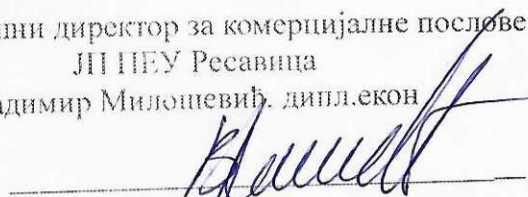 шни директор за комерцијалне послове
ЈП ПЕУ Ресавица
адимир Милошевић. дипл.екон